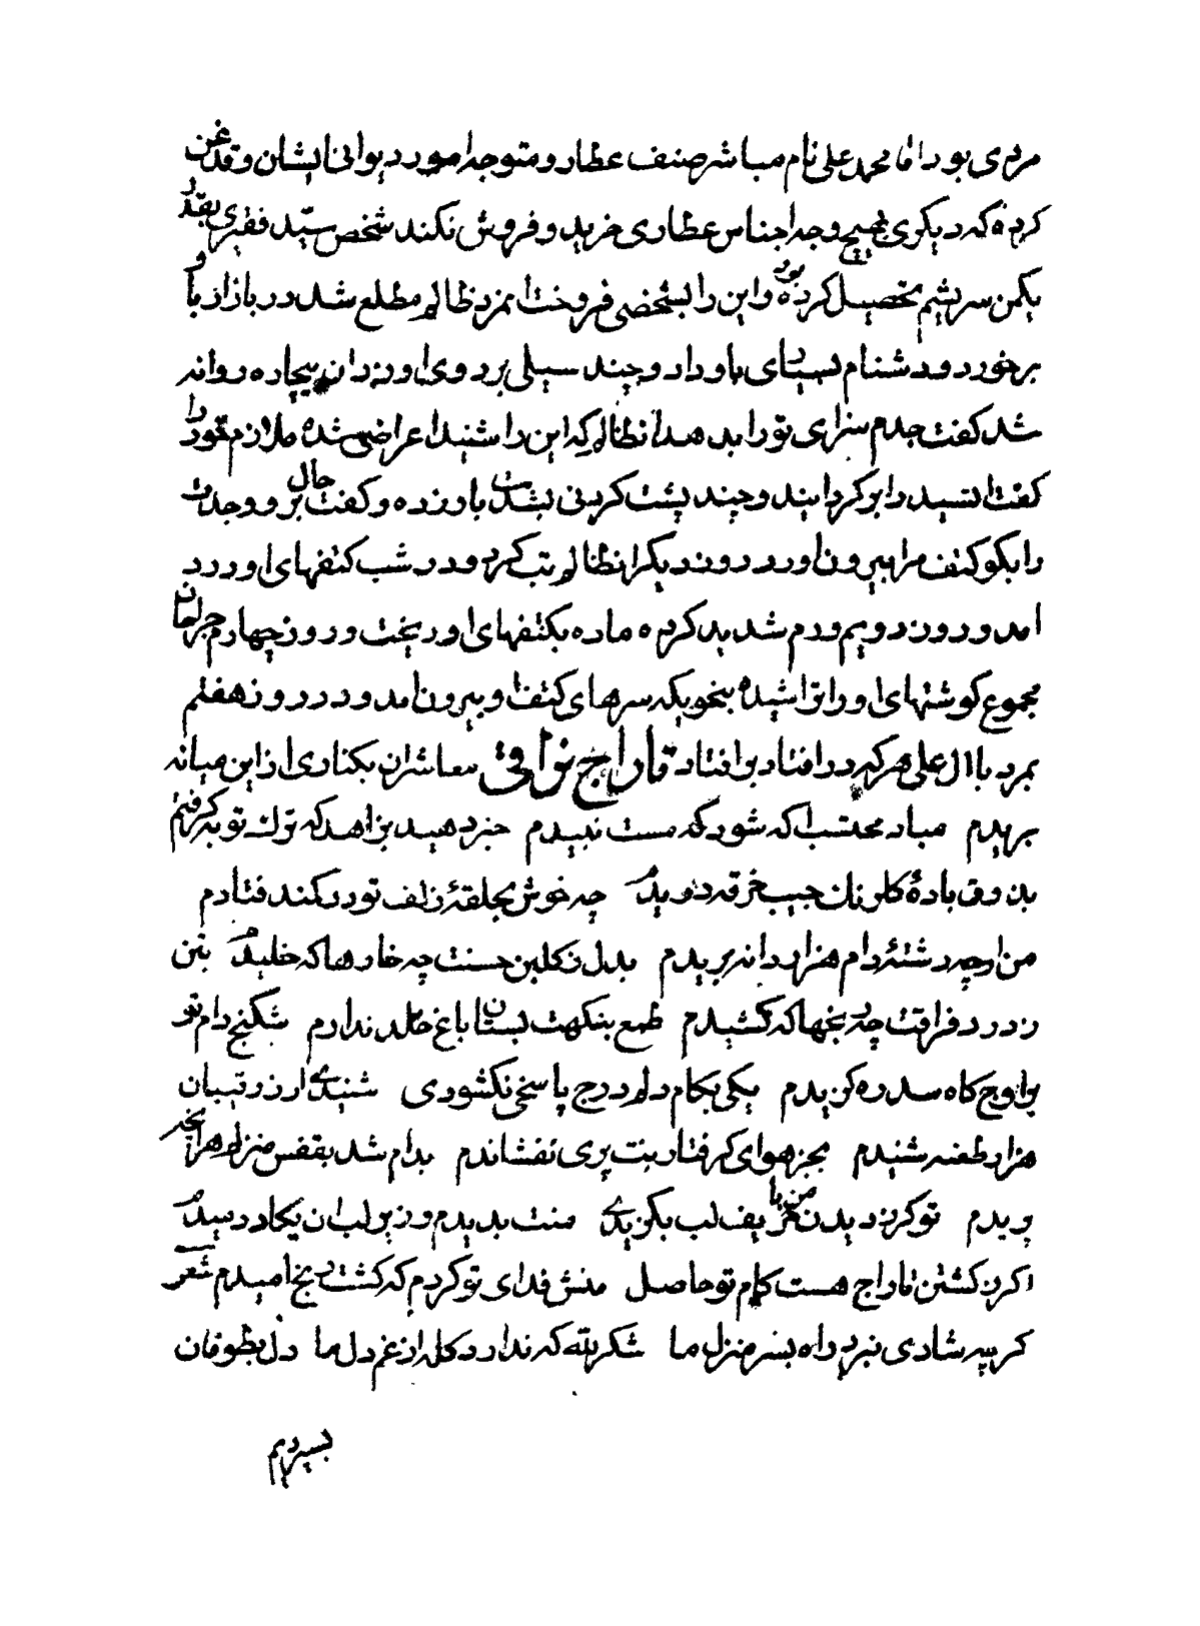 مردی بود اقا محمد علی نام مباشر صنف عطار و متوجه امور دیوانی ایشان و قدغن
کرده که دیکری بهیچ وجه اجناس عطاری خرید و فروش نکند شخص سید فقیری بقدر
یکمن سریشم تحصیل کرده بود و این را بشخصی فروخت انمرد ظالم مطلع شد در بازار باو
برخورد و دشنام بسیاری باو داد و چند سیلی بر روی او زد ان بیچاره روانه
شد کفت جدم سزای تو را بدهد انظالم که این را شنید اعراضی شده ملازم خود را
کفت انسید را برکردانیدند و چند پشت کردنی بشدت باو زده و کفت حال برو و جدت
را بکو کتف مرا بیرون اورد روز دیکر انظالم تب کرد و در شب کتفهای او درد
امد و روز دویم ورم شدید کرده ماده بکتفهای او ریخت و روز چهارم جراحان
مجموع کوشتهای او را تراشیده بنحویکه سرهای کتف او بیرون امد و در روز هفتم
بمرد با ال علی هر که در افتاد بر افتاد تاراج نراقی معاشران بکناری از این میانه
بریدم مباد محتسب اکه شود که مست نبیدم خبر دهید بزاهد که ترک توبه کرفتم
بذوق باده کلرنک جیب خرقه دریدم چه خوش بحلقه زلف تو در کمند فتادم
من ارچه رشته دام هزار دانه بریدم بدل ز کلبن حسنت چه خارها که خلیدم بتن
ز درد فراقت چه رنجها که کشیدم طمع بنکهت بستان باغ خلد ندارم شکنج دام تو
بر اوج کاه سدره کزیدم یکی بکام دلم درج پاسخی نکشودی شنیدی ار ز رقیبان
هزار طعنه شنیدم بجز هوای کرفتاریت پری نفشاندم بدام شد بقفس منزلم هر انچه
پریدم تو کر ز دیدن من با حریف لب بکزیدی منت بدیدم و زیر لب ان یکاد دمیدم
اکر ز کشتن تاراج هست کام تو حاصل منش فدای تو کردم که کشت بخ امیدم شعر
کر چه شادی نبرد راه بسر منزل ما شکر لله که ندارد کله از غم دل ما دل بطوفان
بسپردیم